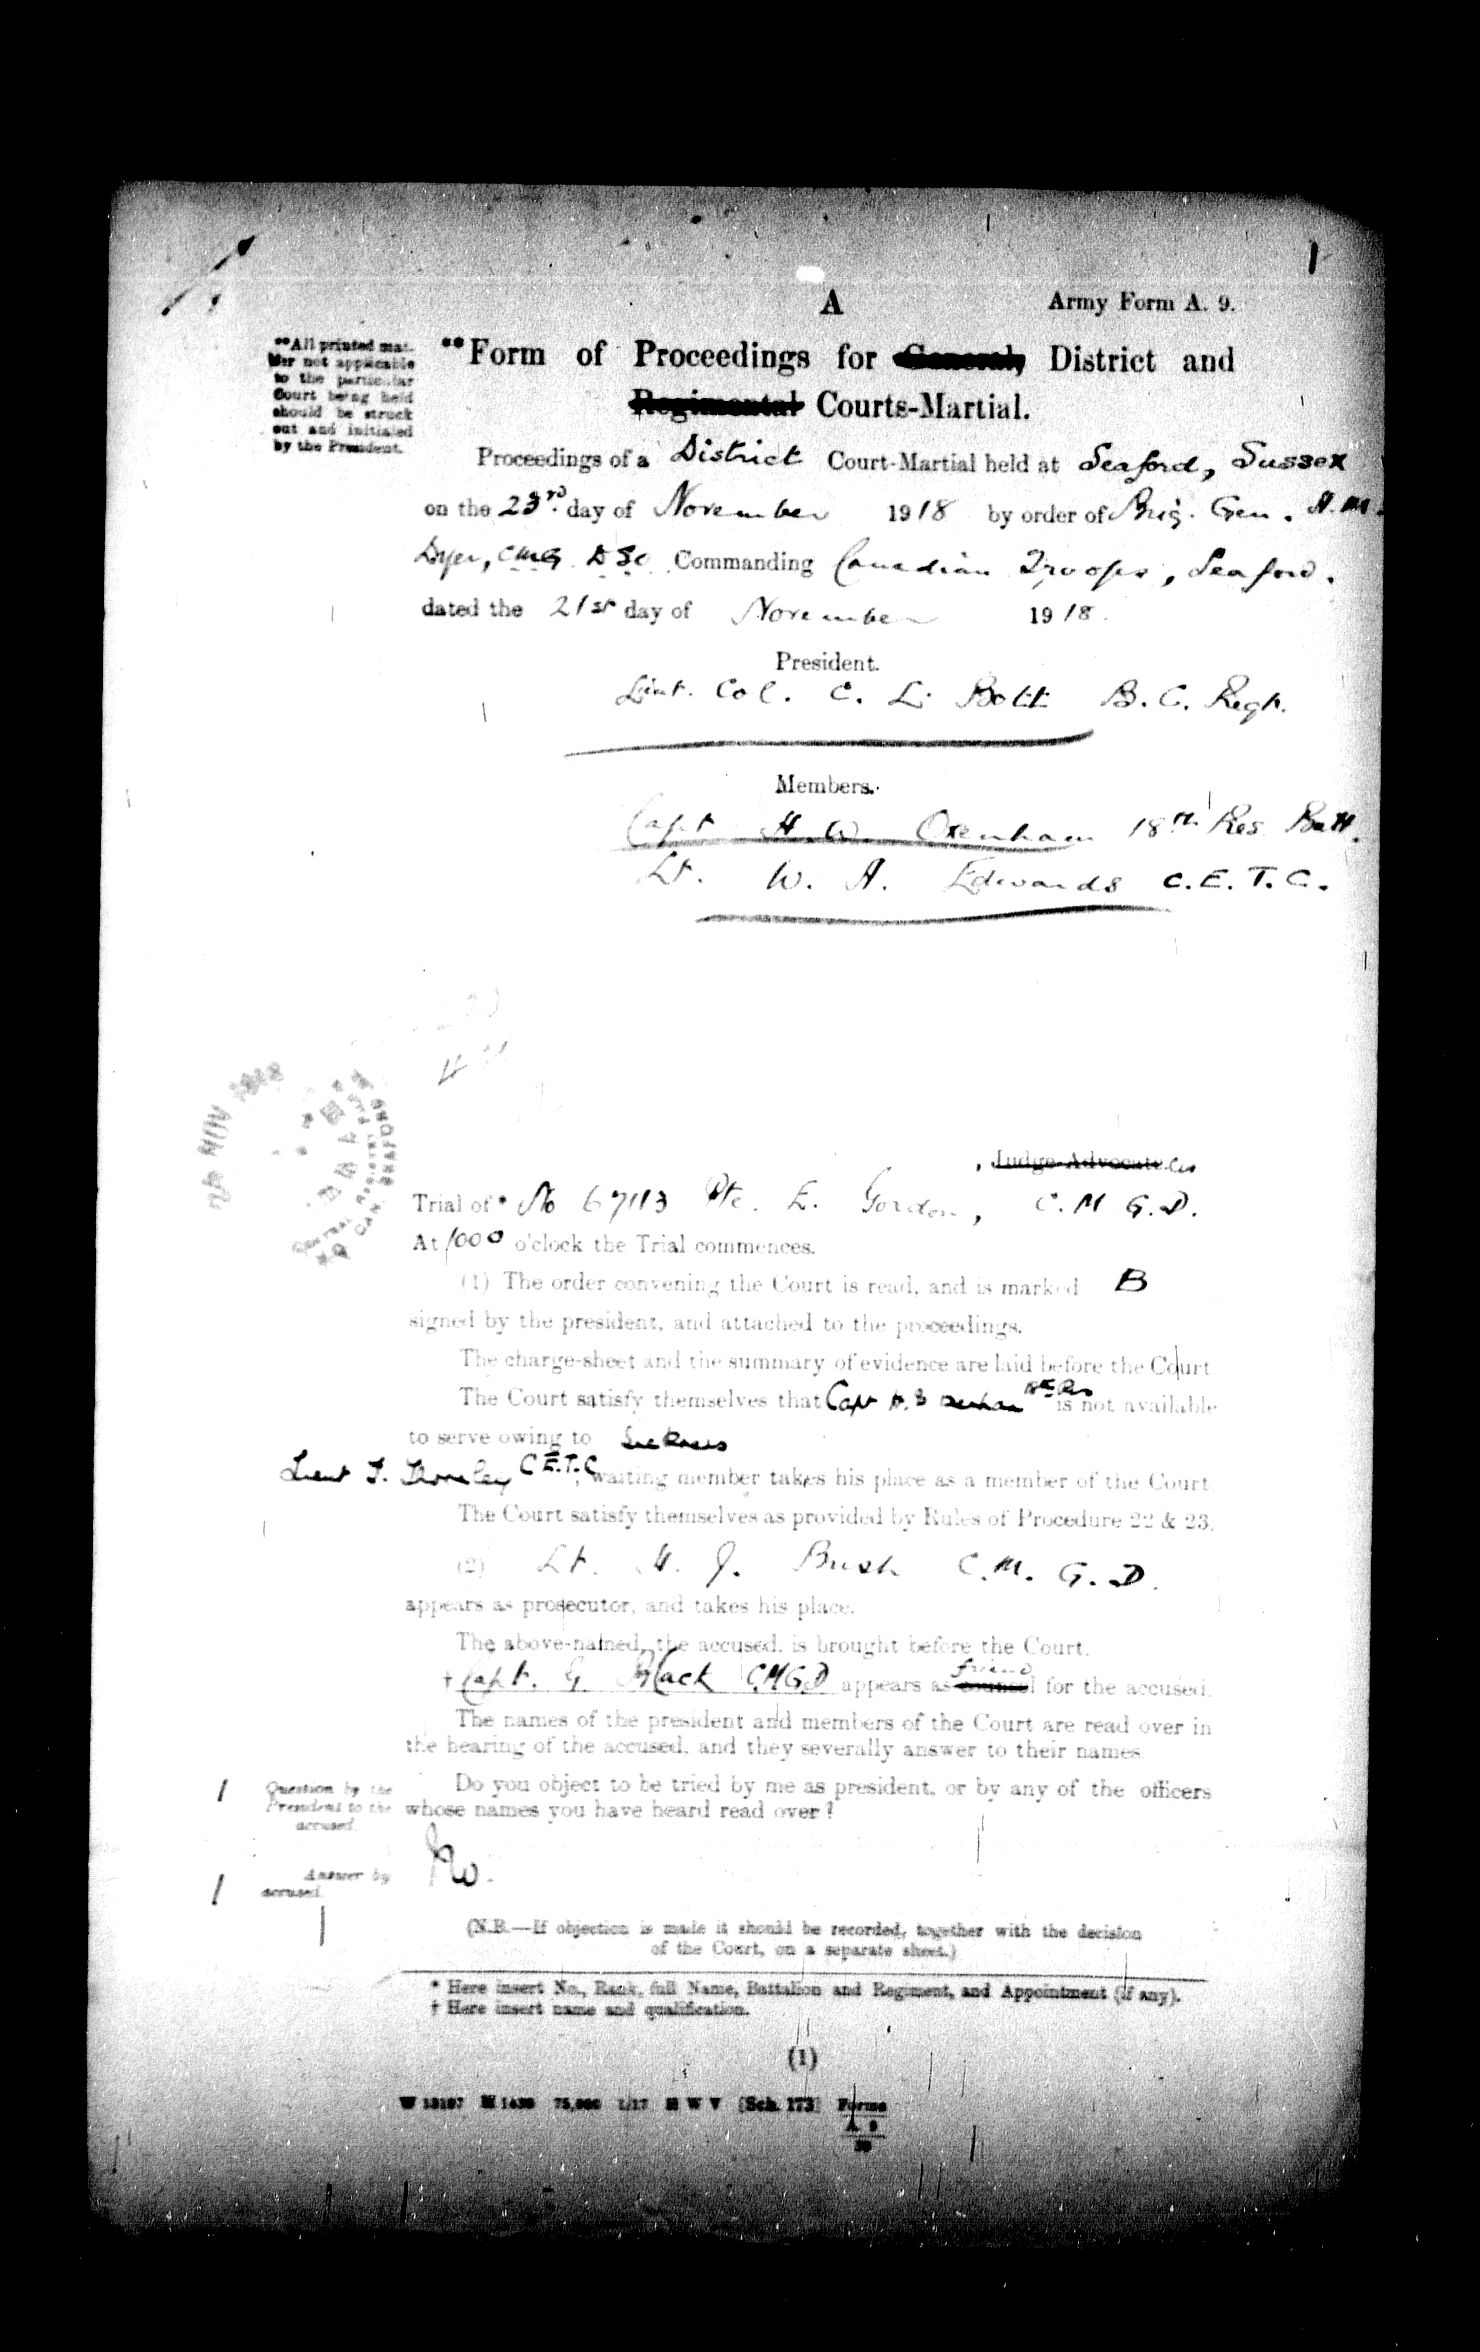 1
A
Army Form A. 9.
**All printed mat-
ter not applicable
to the particular
Court being held
should be struck
out and initialed
by the President.
**Form of Proceedings for General, District and
Regimental Courts-Martial.
Proceedings of a District Court-Martial held at Seaford, Sussex
on the 23rd day of November 1918 by order of Brig. Gen. H.M.
Dyer, CMG DSO Commanding Canadian Troops, Seaford.
dated the 21st day of November 1918.
President.
Lieut. Col. C. L. Bott B.C. Regt.
Members.
Capt H.W. Oxenham 18th Res Batt.
Lt. W. A. Edwards C.E.T.C.
NOV 1918
Judge-Advocate
Trial of * No 67113 Pte. E. Gordon, C.M.G.D.
At 1000 o'clock the Trial commences.
(1) The order convening the Court is read, and is marked B
signed by the president, and attached to the proceedings.
The charge-sheet and the summary of evidence are laid before the Court
The Court satisfy themselves that Capt is not available
to serve owing to Sickness
Lieut C.E.T.C, waiting member takes his place as a member of the Court.
The Court satisfy themselves as provided by Rules of Procedure 22 & 23.
(2) Lt. H. J. Bush C.M.G.D.
appears as prosecutor, and takes his place.
The above-named, the accused, is brought before the Court.
† Capt. G. Black C.M.G.D appears as counsel friend for the accused.
The names of the president and members of the Court are read over in
the hearing of the accused, and they severally answer to their names.
Question by the
President to the
accused.
Do you object to be tried by me as president, or by any of the officers
whose names you have heard read over?
Answer by
accused.
No.
(N.B.—If objection is made it should be recorded, together with the decision
of the Court, on a separate sheet.)
* Here insert No., Rank, full Name, Battalion and Regiment, and Appointment (if any).
† Here insert name and qualification.
(1)
75,000 1/17 H W V [Sch. 173] Forms
A 9